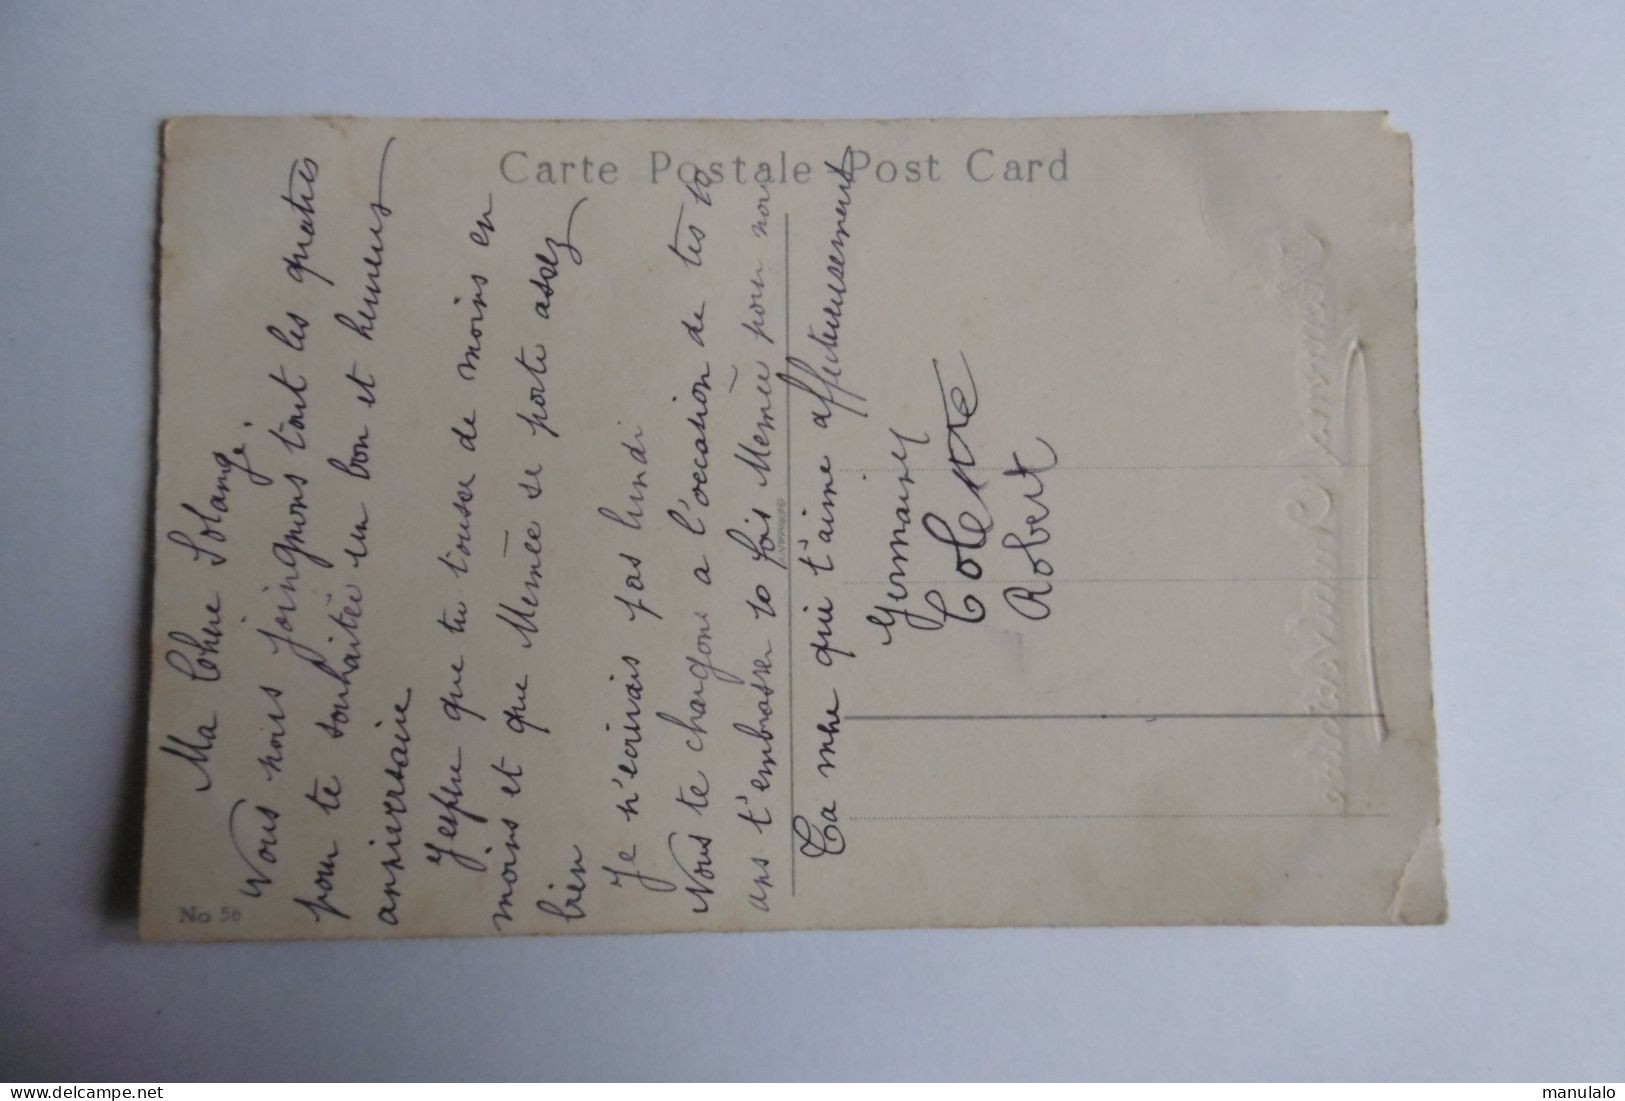 Carte Postale Post Card
No 56
Ma Chère Solange.
Vous nous joignons tout les quatres
pour te souhaitée un bon et heureus
anniversaire
J'espère que tu tousse de moins en
moins et que Memée se porte assez
bien
Je n'ecrivais pas lundi
Nous te chargons a l'occasion de tes 10
ans t'embrasser 10 fois Memée pour nous
GERMANY
Ta mère qui t'aime affectueusement
Germaine
Colette
Robert
Heureux Anniversaire
manulalo
Delcampe.net